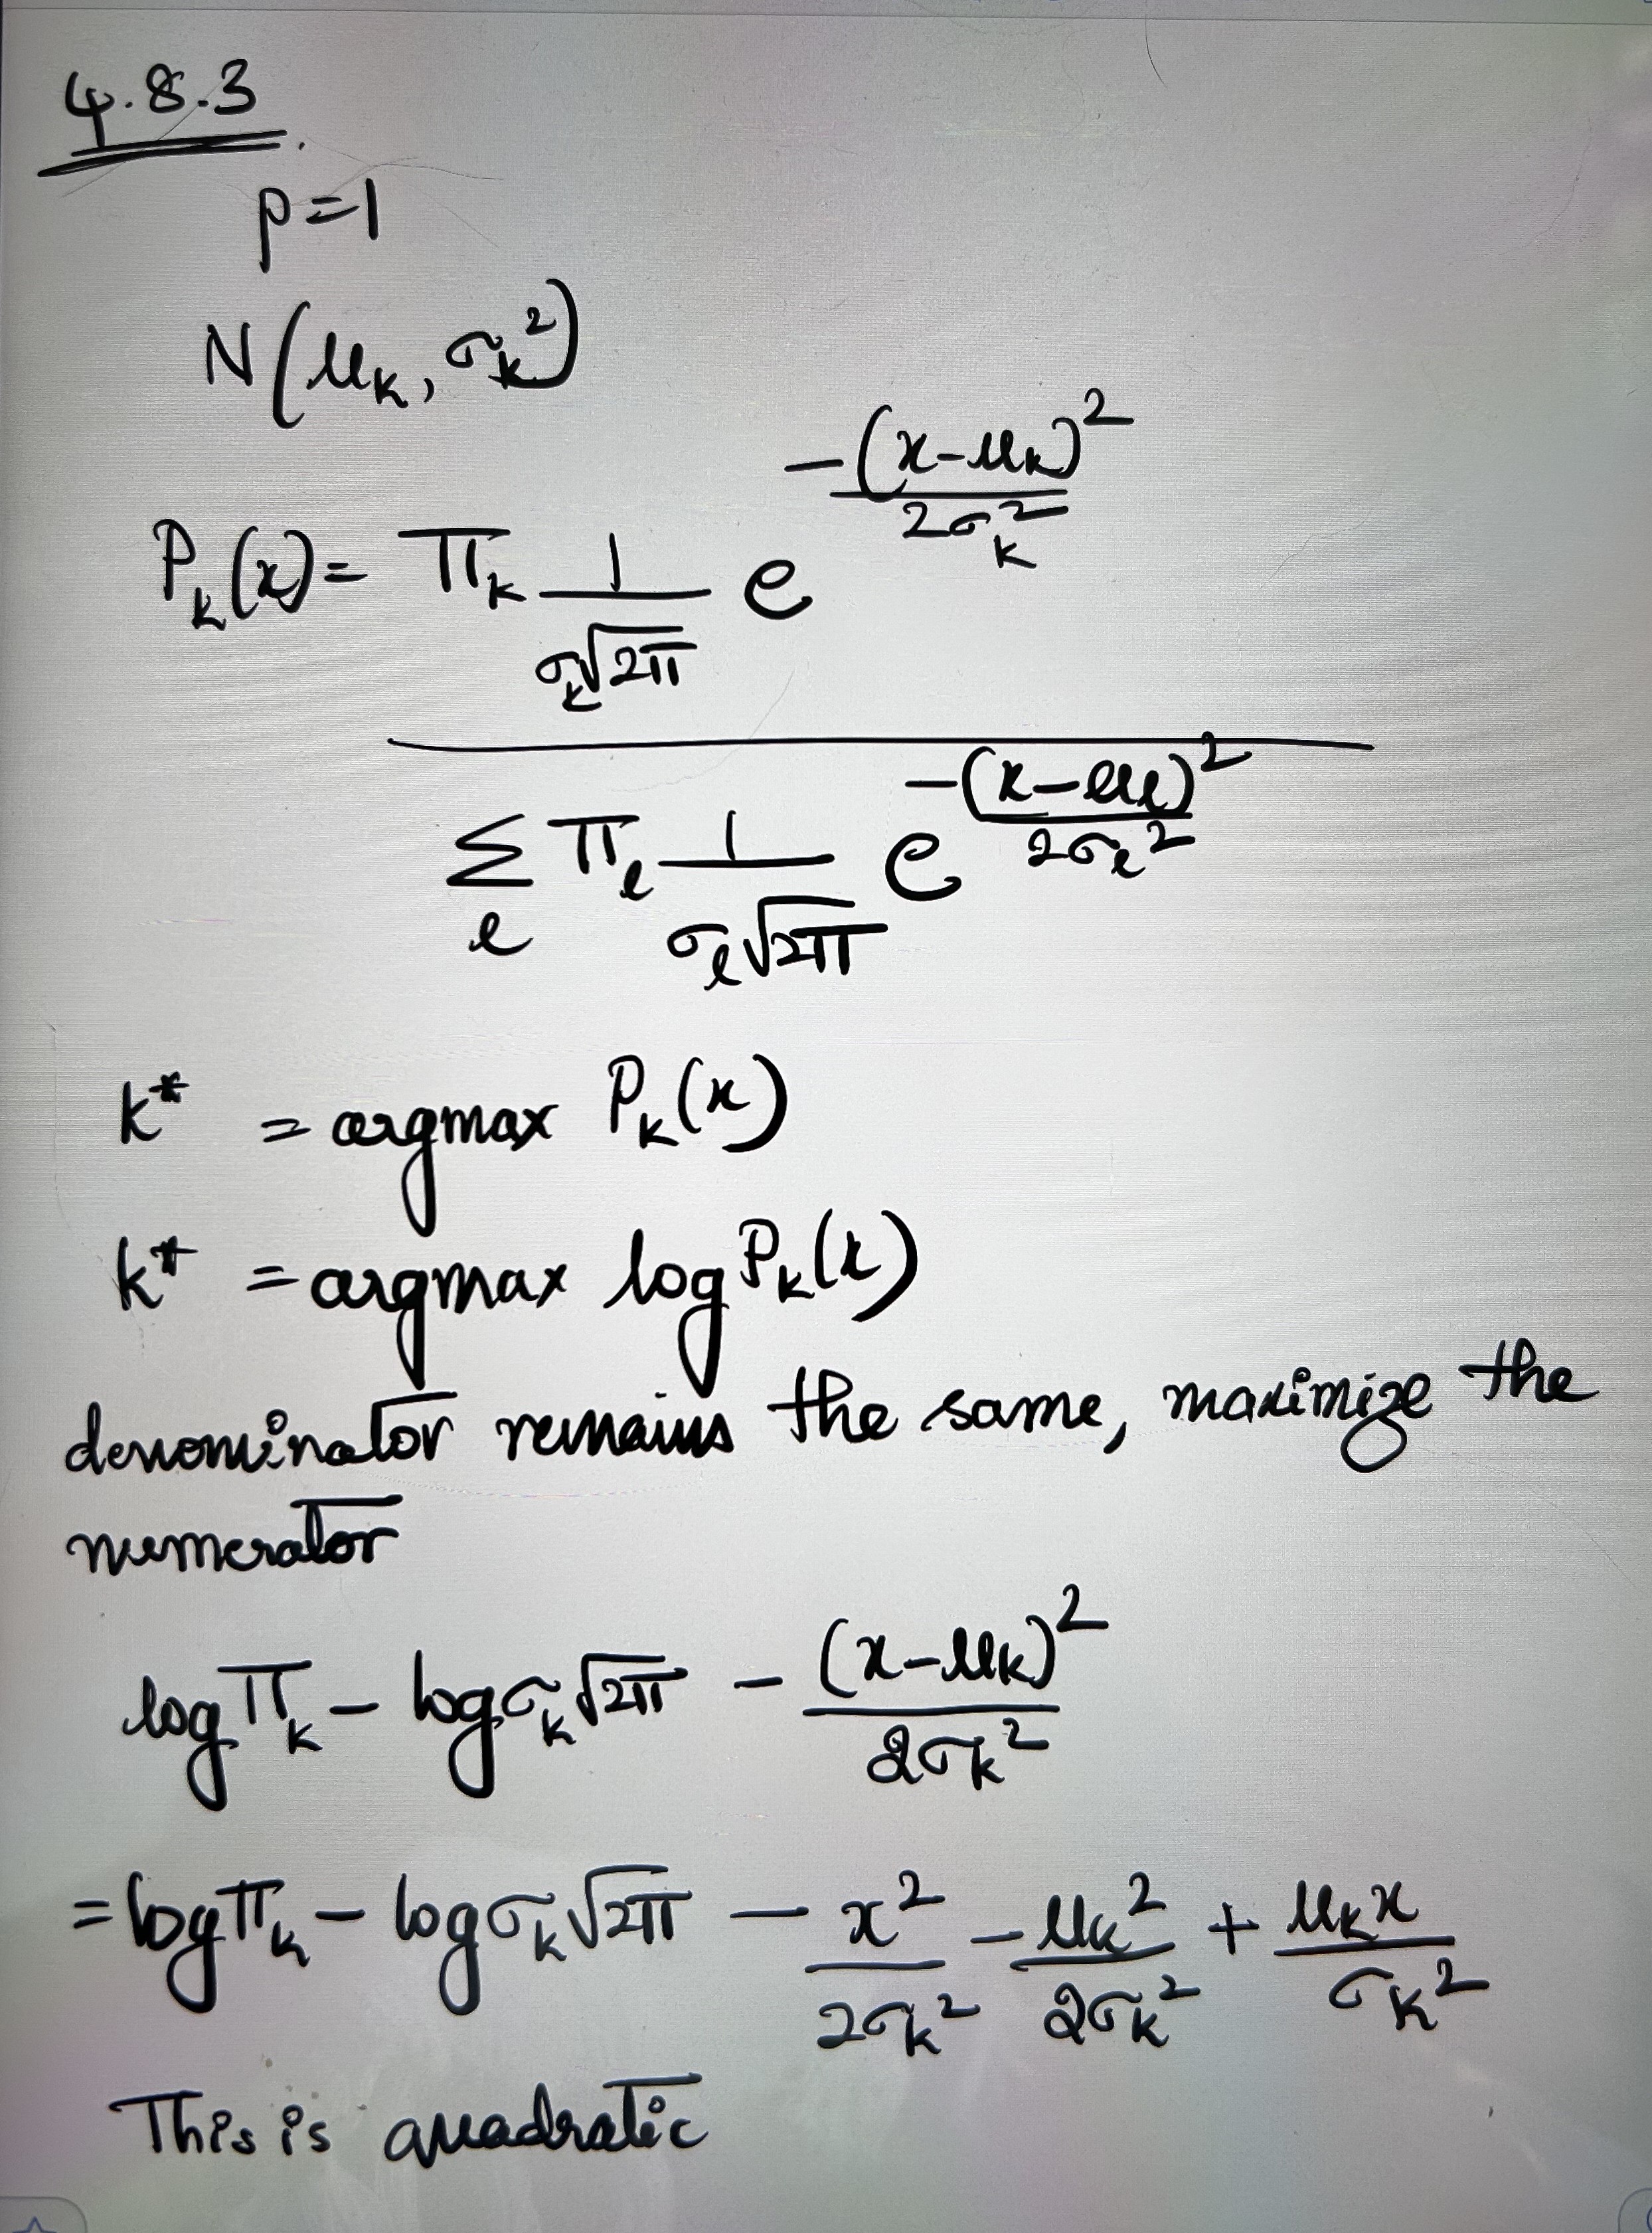 4.8.3
p=1
N(μₖ, σₖ²)
Pₖ(x) = πₖ 1/(σₖ√2π) e^(-(x-μₖ)²/2σₖ²)
/ Σₗ πₗ 1/(σₗ√2π) e^(-(x-μₗ)²/2σₗ²)
k* = argmax Pₖ(x)
k* = argmax log Pₖ(x)
denominator remains the same, maximize the
numerator
log πₖ - log σₖ√2π - (x-μₖ)²/2σₖ²
= log πₖ - log σₖ√2π - x²/2σₖ² - μₖ²/2σₖ² + μₖx/σₖ²
This is quadratic